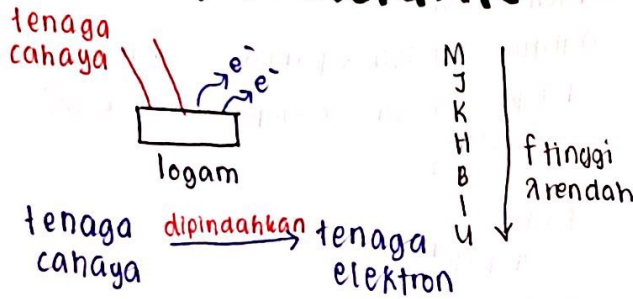 tenaga
cahaya
e⁻
e⁻
logam
M
J
K
H
B
I
U
f tinggi
λ rendah
tenaga
cahaya
dipindahkan
tenaga
elektron